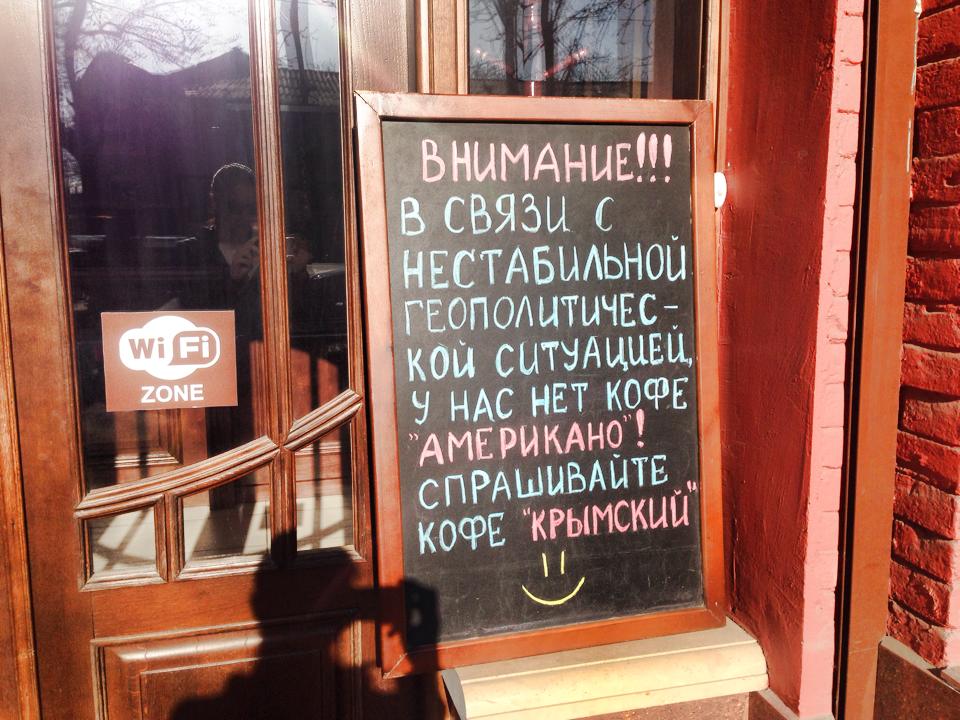 ВНИМАНИЕ!!!
В СВЯЗИ С
НЕСТАБИЛЬНОЙ
ГЕОПОЛИТИЧЕС-
КОЙ СИТУАЦИЕЙ,
У НАС НЕТ КОФЕ
"АМЕРИКАНО"!
СПРАШИВАЙТЕ
КОФЕ "КРЫМСКИЙ"
Wi Fi
ZONE